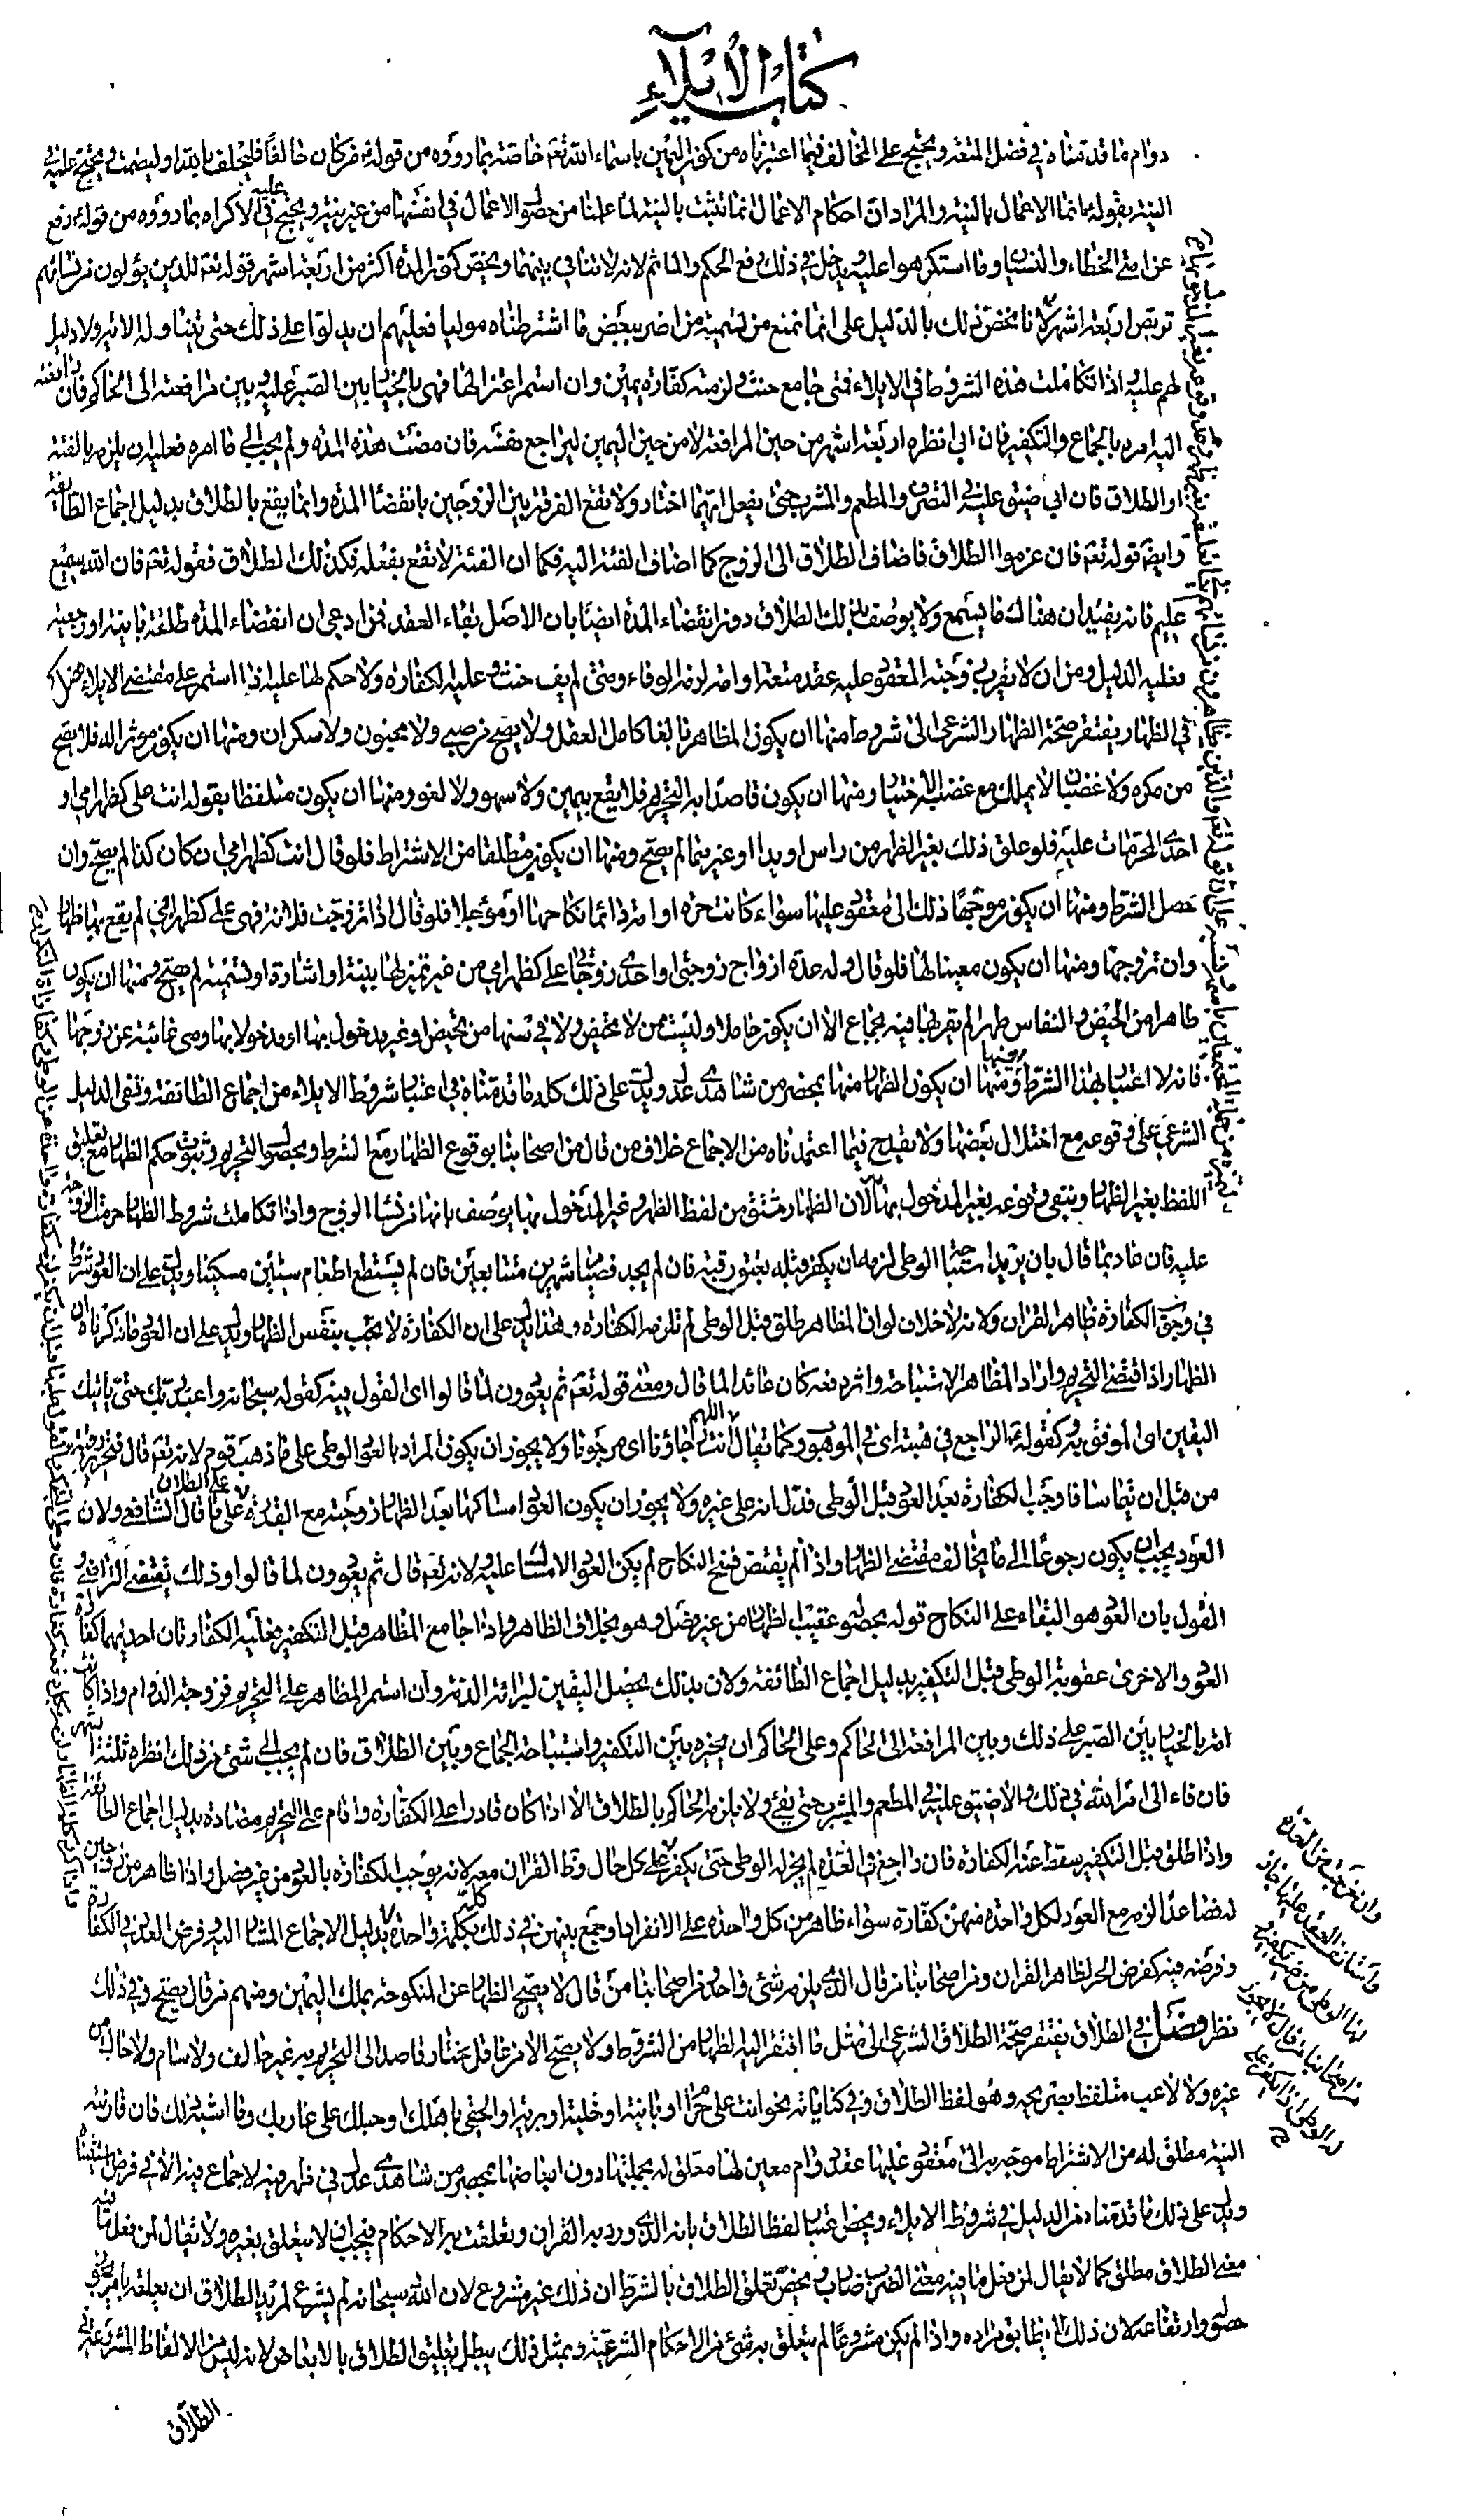 كتاب الإيلاء
دوام ما قدمناه في فصل المتعة ويحتج على المخالف فيما اعتبرناه من كون اليمين باسماء الله تعم خاصة بما رووه من قوله م من كان حالفا فليحلف بالله او ليصمت ويحتج عليه في
النية بقوله م انما الاعمال بالنية والمراد ان احكام الاعمال انما تثبت بالنية لما علمنا من حصول الاعمال في انفسها من غير نية ويحتج عليه في الاكراه بما رووه من قوله م رفع
عن امتي الخطاء والنسيان وما استكرهوا عليه ويدخل في ذلك رفع الحكم والماثم لانه لا تنافي بينهما ويخص كون المدة اكثر من اربعة اشهر قوله تعم للذين يؤلون من نسائهم
تربص اربعة اشهر لانا نخص ذلك بالدليل على انما نمنع من تسمية من اضر ببعض ما اشترطناه موليا فعليهم ان يدلوا على ذلك حتى تتناوله الاية ولا دليل
لهم عليه اذا تكاملت هذه الشروط في الايلاء فمتى جامع حنث ولزمته كفارة يمين وان استمر اعتزالها فهي بالخيار بين الصبر عليه وبين مرافعته الى الحاكم فان رافعته
اليه امره بالجماع والتكفير فان ابى انظره اربعة اشهر من حين المرافعة لا من حين اليمين ليراجع نفسه فان مضت هذه المدة ولم يجب الى ما امره فعليه ان يلزمه بالفئة
او الطلاق فان ابى ضيق عليه في التصرف والمطعم والمشرب حتى يفعل ايهما اختار ولا تقع الفرقة بين الزوجين بانقضاء المدة وانما يقع بالطلاق بدليل اجماع الطائفة
وايضم قوله تعم فان عزموا الطلاق فاضاف الطلاق الى الزوج كما اضاف الفئة اليه فكما ان الفئة لا تقع بفعله فكذلك الطلاق فقوله تعم فان الله سميع
عليم فانه يفيد ان هناك ما يسمع ولا يوصف بذلك الطلاق دون انقضاء المدة ايضا بان الاصل بقاء العقد فمن ادعى ان انقضاء المدة طلقة باينة او رجعية
فعليه الدليل ومن ان لا يقرب زوجته المعقود عليه عقد متعة او امته لزمه الوفاء ومتى لم يف حنث وعليه الكفارة ولا حكم لها عليه اذا استمر على مقتضى الايلاء فصل
في الظهار يفتقر صحة الظهار الشرعي الى شروط منها ان يكون المظاهر بالغا كامل العقل ولا يصح من صبي ولا مجنون ولا سكران ومنها ان يكون مؤثرا له فلا يصح
من مكره ولا غضبان لا يملك مع غضبه الاختيار ومنها ان يكون قاصدا به التحريم فلا يقع بيمين ولا سهو ولا لغو ومنها ان يكون متلفظا بقوله انت علي كظهر امي او
احدى المحرمات عليه فلو علق ذلك بغير الظهر من راس او يد او غيرهما لم يصح ومنها ان يكون مطلقا من الاشتراط فلو قال انت كظهر امي ان كان كذا لم يصح وان
حصل الشرط ومنها ان يكون موجها ذلك الى معقود عليها سواء كانت حرة او امة دائما نكاحها او مؤجلا فلو قال اذا تزوجت فلانة فهي علي كظهر امي لم يقع بها ظهار
وان تزوجها ومنها ان يكون معينا لها فلو قال وله عدة ازواج زوجتي او احدى زوجاتي علي كظهر امي من غير تميز لها بنية او اشارة او تسمية لم يصح ومنها ان يكون
طاهرا من الحيض والنفاس طهرا لم يقربها فيه بجماع الا ان يكون حاملا او ليست ممن لا تحيض ولا في سنها من تحيض او غير مدخول بها او مدخولا بها وهي غائبة عن زوجها
فانه لا اعتبار بهذا الشرط فيها ومنها ان يكون الظهار منها بمحضر من شاهدي عدل ويدل على ذلك كله ما قدمناه في اعتبار شروط الايلاء من اجماع الطائفة ونفي الدليل
الشرعي على وقوعه مع اختلال بعضها ولا يقدح فيما اعتمدناه من الاجماع خلاف من قال من اصحابنا بوقوع الظهار مع الشرط وبحصول التحريم وثبوت حكم الظهار مع تعليق
اللفظ بغير الظهار وينفى وقوعه بغير المدخول بها لان الظهار مشتق من لفظ الظهر وغير المدخول بها يوصف بانها من نساء الزوج واذا تكاملت شروط الظهار حرمت الزوجة
عليه فان عاد بما قال بان يريد استباحة الوطي لزمه ان يكفر قبله بعتق رقبة فان لم يجد فصيام شهرين متتابعين فان لم يستطع اطعام ستين مسكينا ويدل على ان العود شرط
في وجوب الكفارة ظاهر القران ولانه لا خلاف لو ان المظاهر طلق قبل الوطي لم تلزمه الكفارة وهذا يدل على ان الكفارة لا تجب بنفس الظهار ويدل على ان العود ما ذكرناه ان
الظهار اذا اقتضى التحريم واراد المظاهر الاستباحة واثر رفعه كان عائدا لما قال ومعنى قوله تعم ثم يعودون لما قالوا اى المقول فيه كقوله سبحانه واعبد ربك حتى ياتيك
اليقين اى الموقن به وكقوله م الراجع في هبته اى في الموهوب وكما يقال اللهم انت رجاؤنا اى مرجونا ولا يجوز ان يكون المراد بالعود الوطي على ما ذهب قوم لانه تعم قال فتحرير رقبة
من قبل ان يتماسا فاوجب الكفارة بعد العود قبل الوطي فدل انه على غيره ولا يجوز ان يكون العود امساكها بعد الظهار زوجته مع القدرة على الطلاق على ما قال الشافعي ولان
العود يجب ان يكون رجوعا الى ما يخالف مقتضى الظهار واذا لم يقتض فسخ النكاح لم يكن العود الامساك عليه ولانه تعم قال ثم يعودون لما قالوا وذلك يقتضي التراخي و
القول بان العود هو البقاء على النكاح قوله بحصول عقيب الظهار من غير فصل وهو بخلاف الظاهر واذا جامع المظاهر قبل التكفير فعليه الكفارتان احديهما كفارة
العود والاخرى عقوبة الوطي قبل التكفير بدليل اجماع الطائفة ولان بذلك يحصل اليقين لبرائة الذمة وان استمر المظاهر على التحريم فزوجته الدوام واذا كانت
امة بالخيار بين الصبر على ذلك وبين المرافعة الى الحاكم وعلى الحاكم ان يخيره بين التكفير واستباحة الجماع وبين الطلاق فان لم يجب الى شئ من ذلك انظره ثلثة اشهر
فان فاء الى امر الله في ذلك والا ضيق عليه في المطعم والمشرب حتى يفئ ولا يلزمه الحاكم بالطلاق الا اذا كان قادرا على الكفارة واقام على التحريم مضارة بدليل اجماع الطائفة
واذا طلق قبل التكفير سقط عنه الكفارة فان راجع في العدة لم يجز له الوطي حتى يكفر على كل حال وظاهر القران معه لانه يوجب الكفارة بالعود من غير فصل واذا ظاهر من زوجتين
له فصاعدا لزمه مع العود لكل واحدة منهن كفارة سواء ظاهر من كل واحدة على الانفراد او جمع بينهن في ذلك كله بكلمة واحدة بدليل الاجماع المشار اليه وفرض العبد في الكفارة
وفرضه فيه كفرض الحر لظاهر القران ومن اصحابنا من قال الذي يلزمه شئ واحد ومن اصحابنا من قال لا يصح الظهار عن المنكوحة بملك اليمين ومنهم من قال يصح وفي ذلك
نظر فصل في الطلاق يفتقر صحة الطلاق الشرعي الى مثل ما افتقر اليه الظهار من الشروط ولا يصح الا من عاقل مختار قاصد الى التحريم به غير حالف ولا سام ولا حاك من
غيره ولا لاعب متلفظ بصريحه وهو لفظ الطلاق وفي كناياته نحو انت علي حرام او باينة او خلية او برية او الحقي باهلك او حبلك على غاربك وما اشبه ذلك فان قارنته
النية مطلق له من الاشتراط موجه به الى معقود عليها عقد دوام معين لها معلق له بجملتها دون ابعاضها بمحضر من شاهدي عدل في طهر فيه لا جماع فيه الا في فرض استثنيناه
ويدل على ذلك ما قدمناه من الدليل في شروط الايلاء ويخص اعتبار لفظ الطلاق بانه الذي ورد به القران وتعلقت به الاحكام فيجب ان لا يتعلق بغيره ولا يقال لمن فعل ما فيه
معنى الطلاق مطلق كما لا يقال لمن فعل ما فيه معنى الضرب ضارب ويخص تعلق الطلاق بالشرط ان ذلك غير مشروع لان الله سبحانه لم يشرع لمريد الطلاق ان يعلقه بامر يجوز
حصوله وارتفاعه لان ذلك لا يطابق مراده واذا لم يكن مشروعا لم يتعلق به شئ من الاحكام الشرعية وبمثل ذلك يبطل تعليق الطلاق بالابعاض لانه ليس من الالفاظ المشروعة في
الطلاق
وان خرجت عن العدة
واستانف العقد عليها جاز
لها الوطي من غير تكفير
من اصحابنا من قال لا يجوز
له الوطي اذا يكفر على